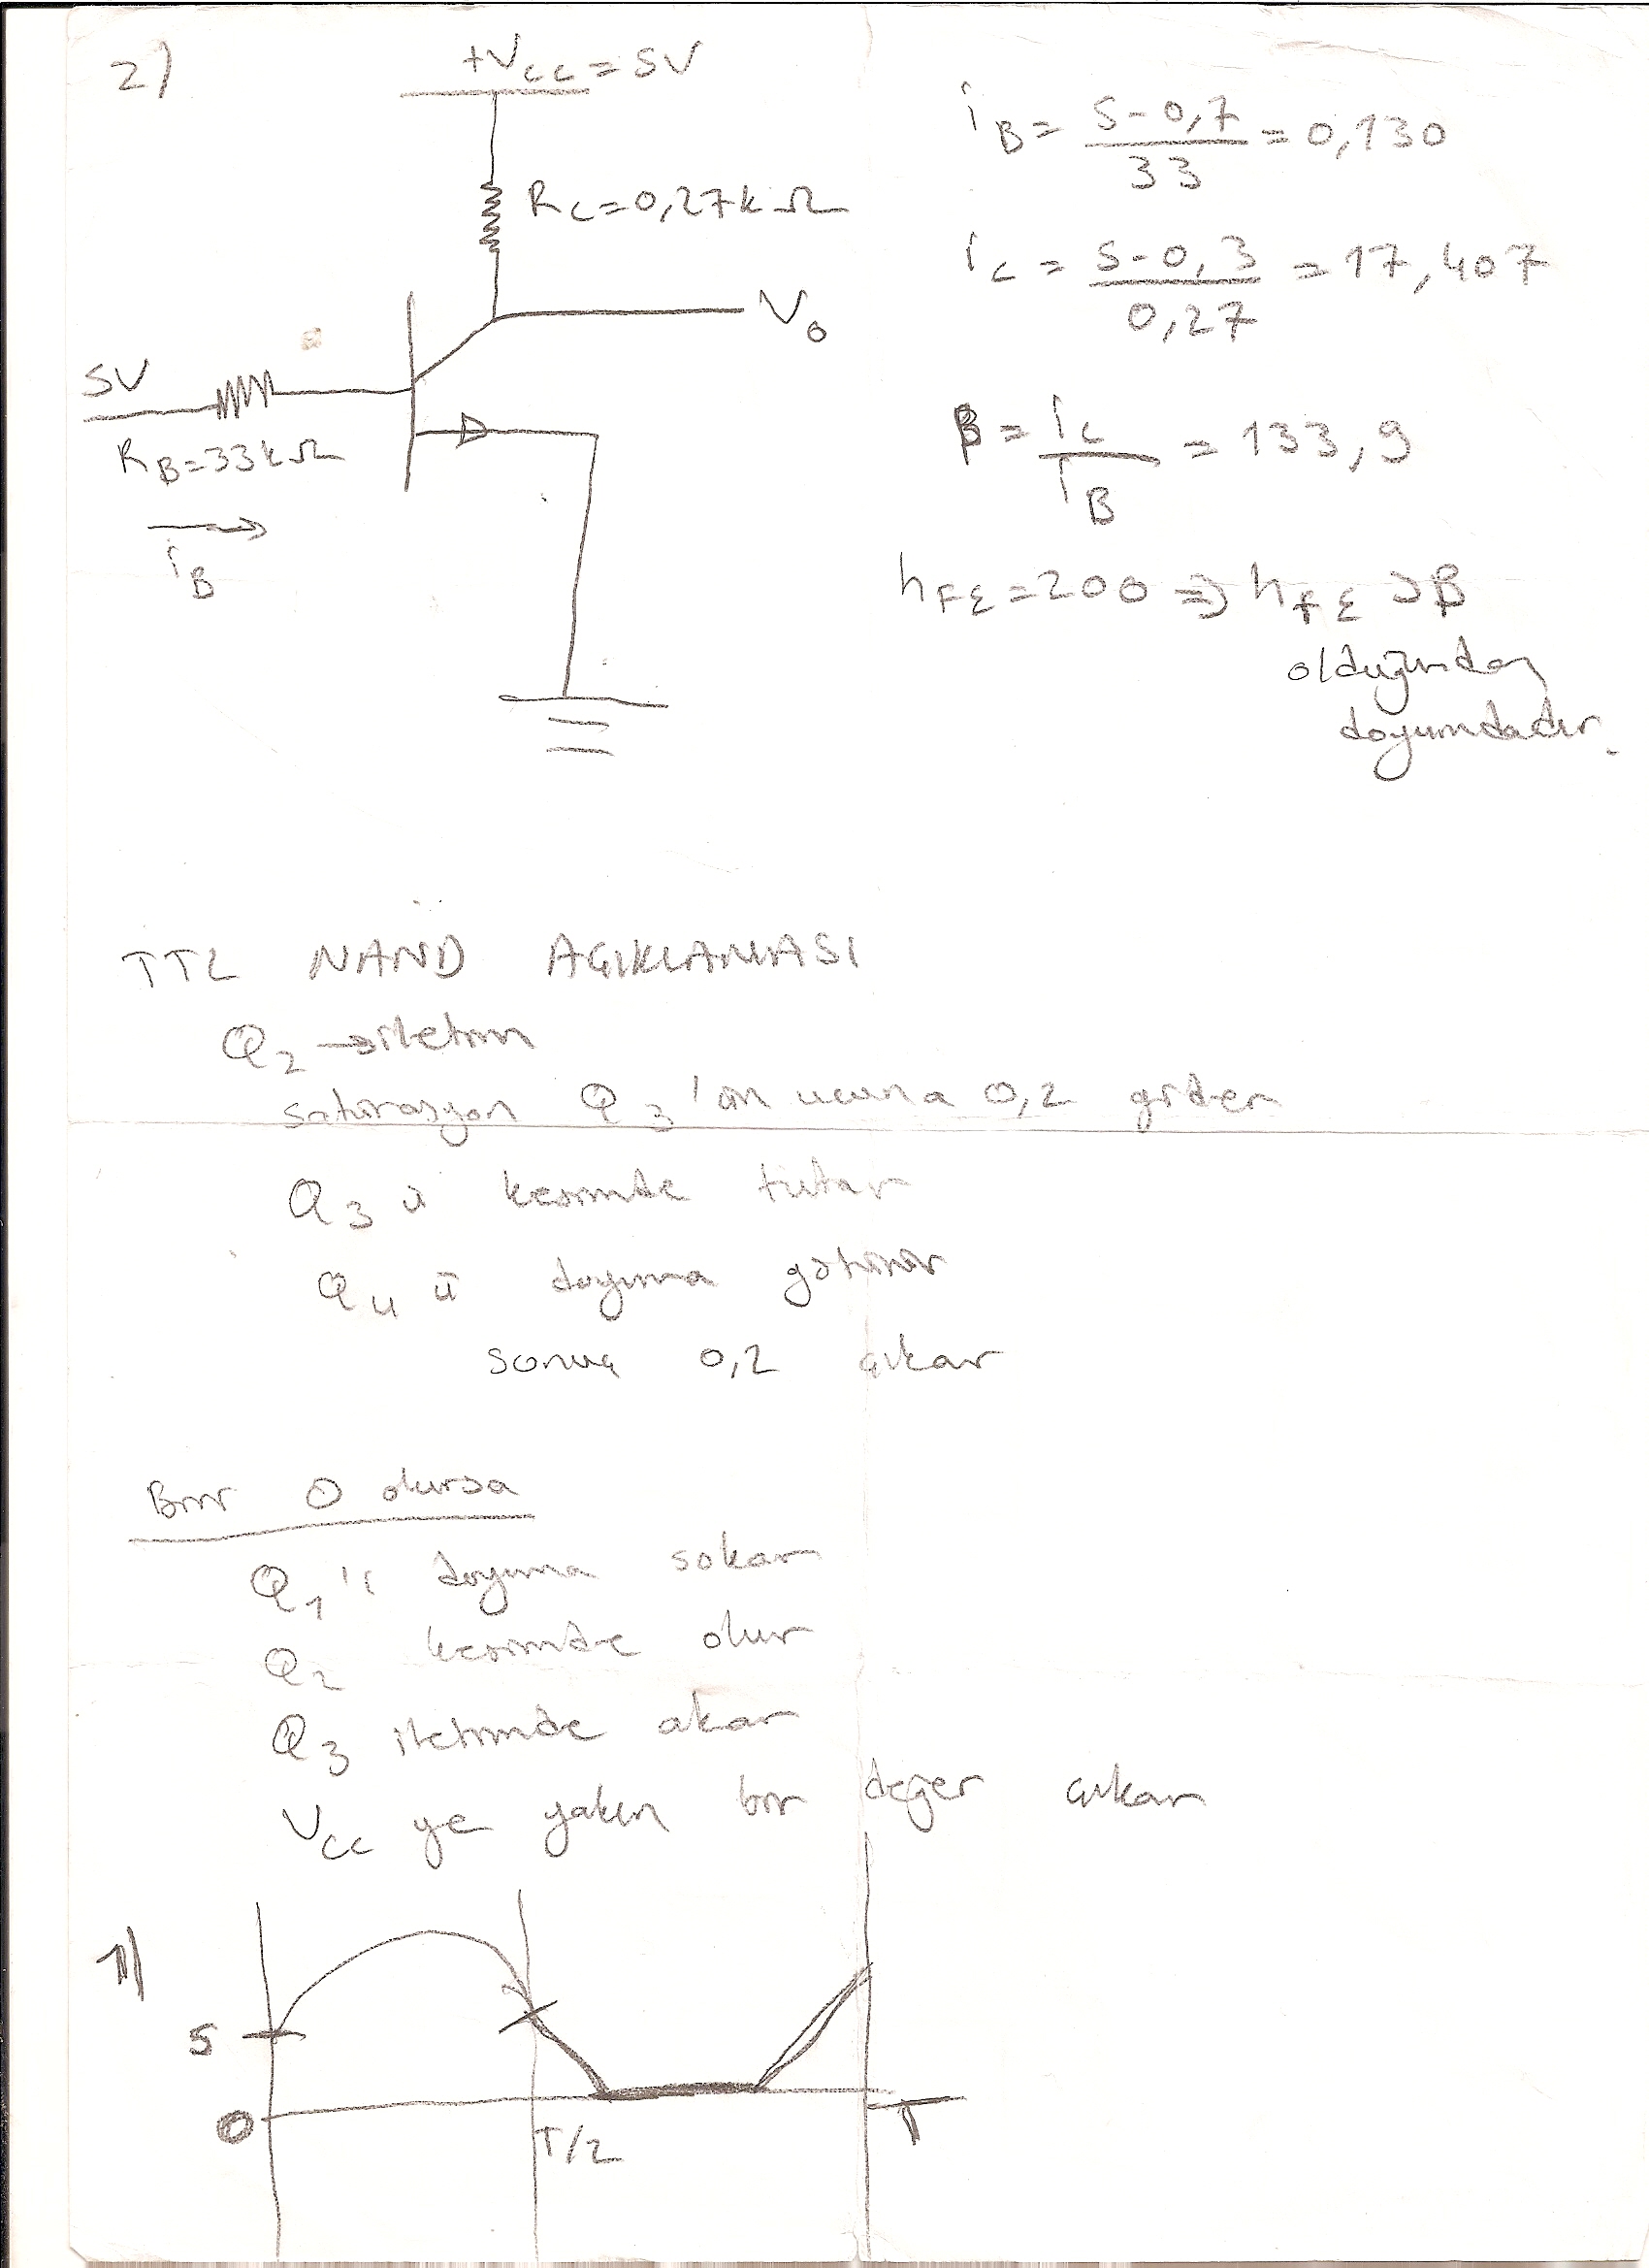 2)
+Vcc = 5V
RC = 0,27k Ω
Vo
5V
RB = 33k Ω
iB
iB = 5-0,7 / 33 = 0,130
iC = 5-0,3 / 0,27 = 17,407
β = iC / iB = 133,9
hFE = 200 ⇒ hFE > β
olduğundan
doyumdadır.
TTL NAND AÇIKLAMASI
Q2 → iletim
satürasyon Q3 'ün ucuna 0,2 gider
Q3 ü kesimde tutar
Q4 ü doyuma götürür
sonuç 0,2 çıkar
Biri 0 olursa
Q1'i doyuma sokar
Q2 kesimde olur
Q3 iletimde akar
Vcc ye yakın bir değer çıkar
1)
5
0
T/2
T